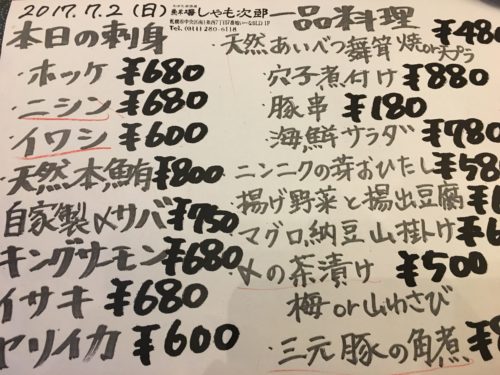 2017.7.2(日)
しゃも次郎
Tel. (011) 280-6118
本日の刺身
・ホッケ ¥680
・ニシン ¥680
・イワシ ¥600
・天然本鮪 ¥800
自家製〆サバ ¥750
キングサーモン ¥680
イサキ ¥680
ヤリイカ ¥600
一品料理
・天然あいべつ舞茸 焼or天プラ ¥480
・穴子煮付け ¥880
・豚串 ¥180
・海鮮サラダ ¥780
・ニンニクの芽おひたし ¥58
・揚げ野菜と揚出豆腐 ¥
・マグロ納豆山掛け ¥6
〆の茶漬け ¥500
梅or山わさび
・三元豚の角煮 ¥8